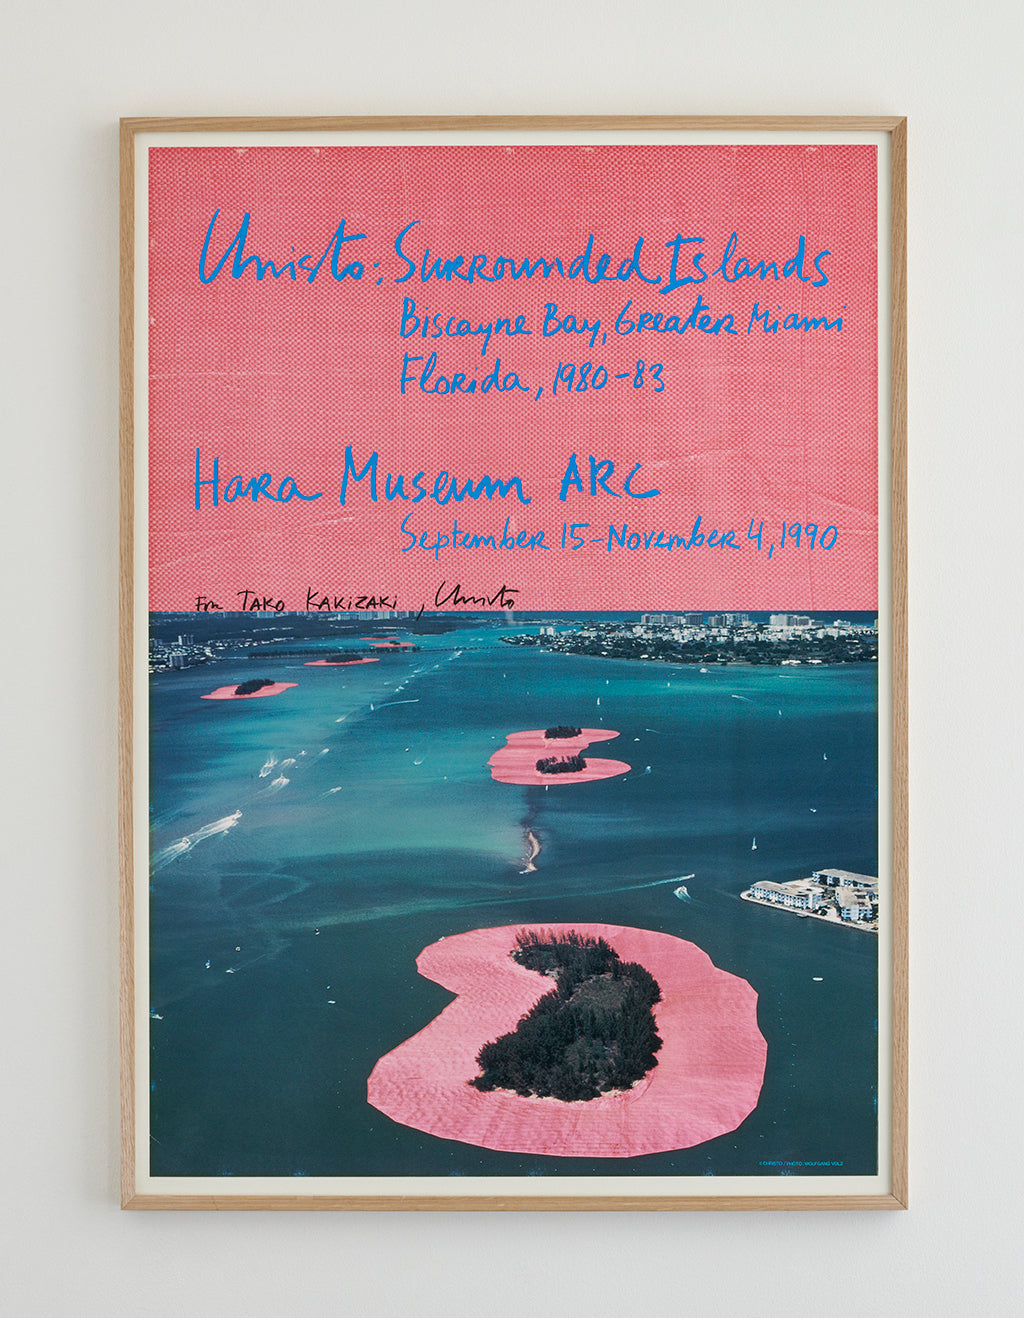 Christo: Surrounded Islands
Biscayne Bay, Greater Miami
Florida, 1980-83
Hara Museum ARC
September 15-November 4, 1990
For TAKO KAKIZAKI, Christo
© CHRISTO / PHOTO: WOLFGANG VOLZ